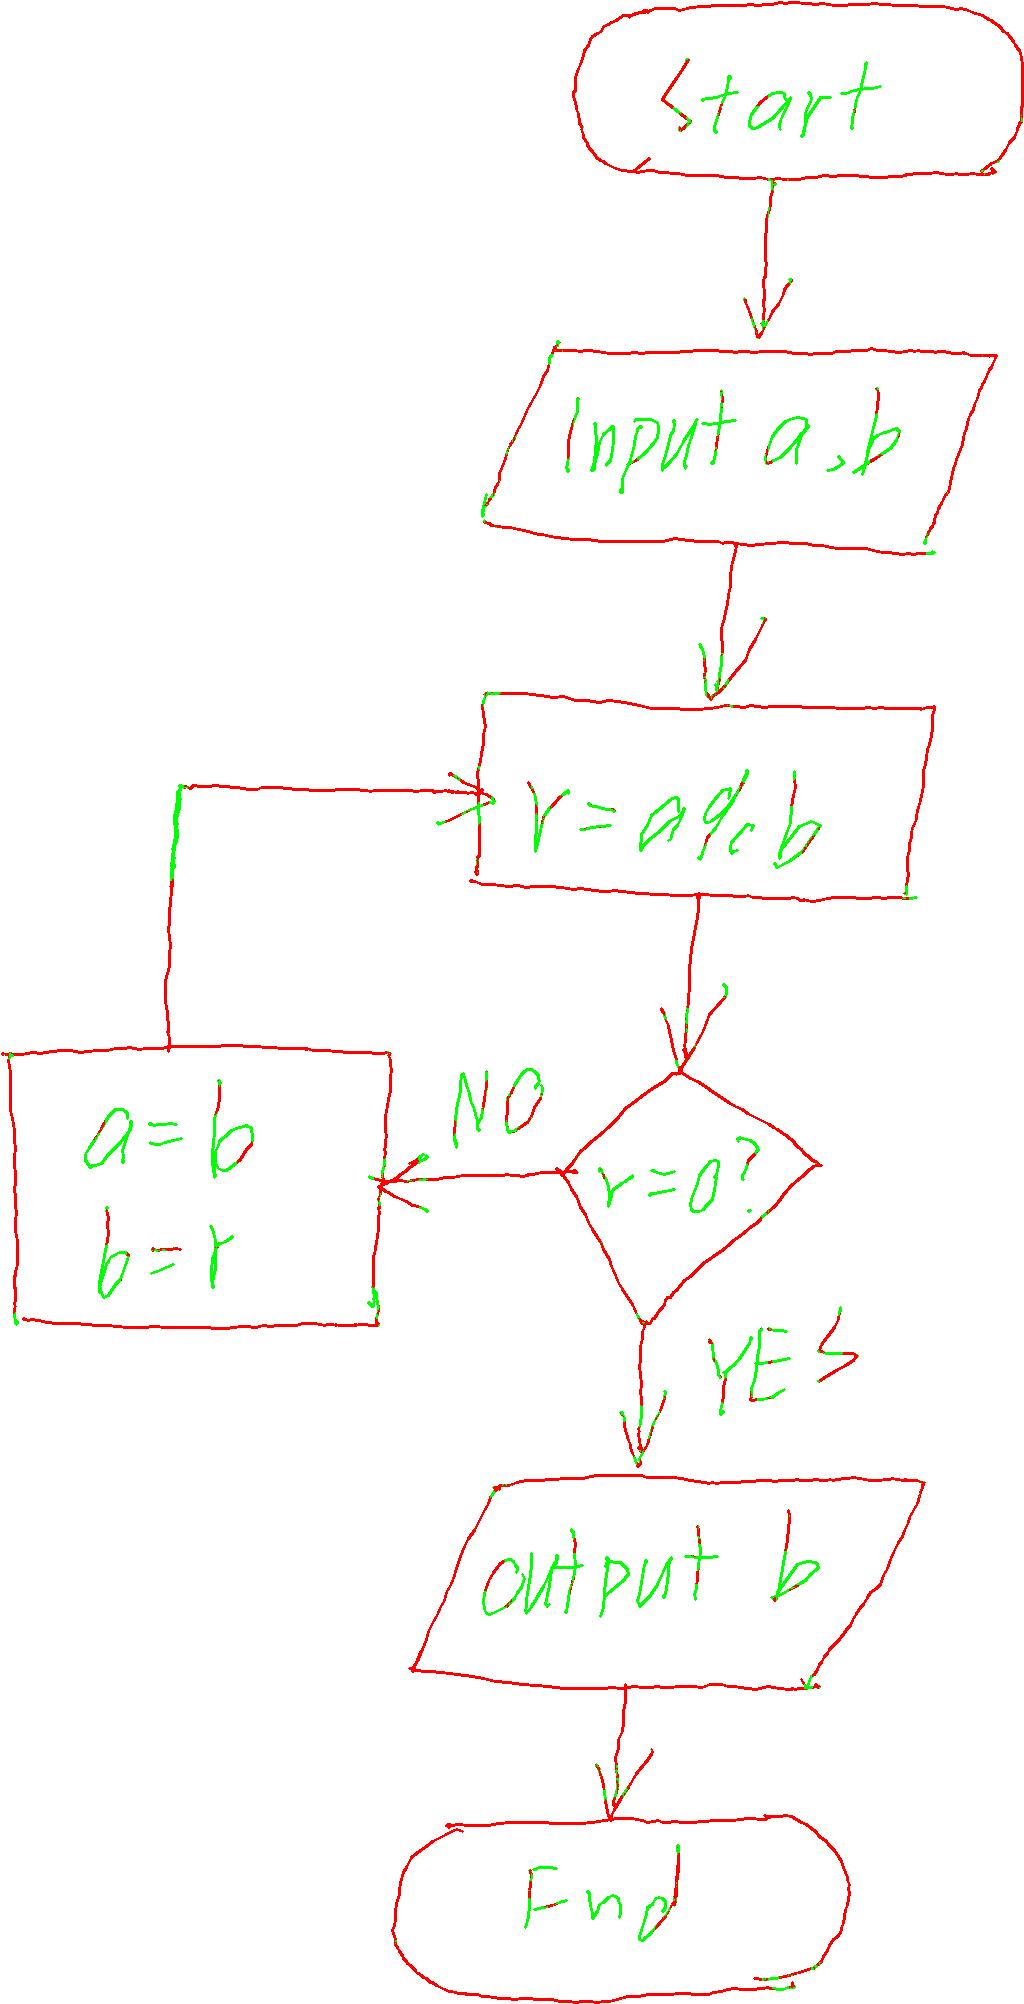 Start
Input a,b
r=a%b
NO
r=0?
a=b
b=r
YES
output b
End